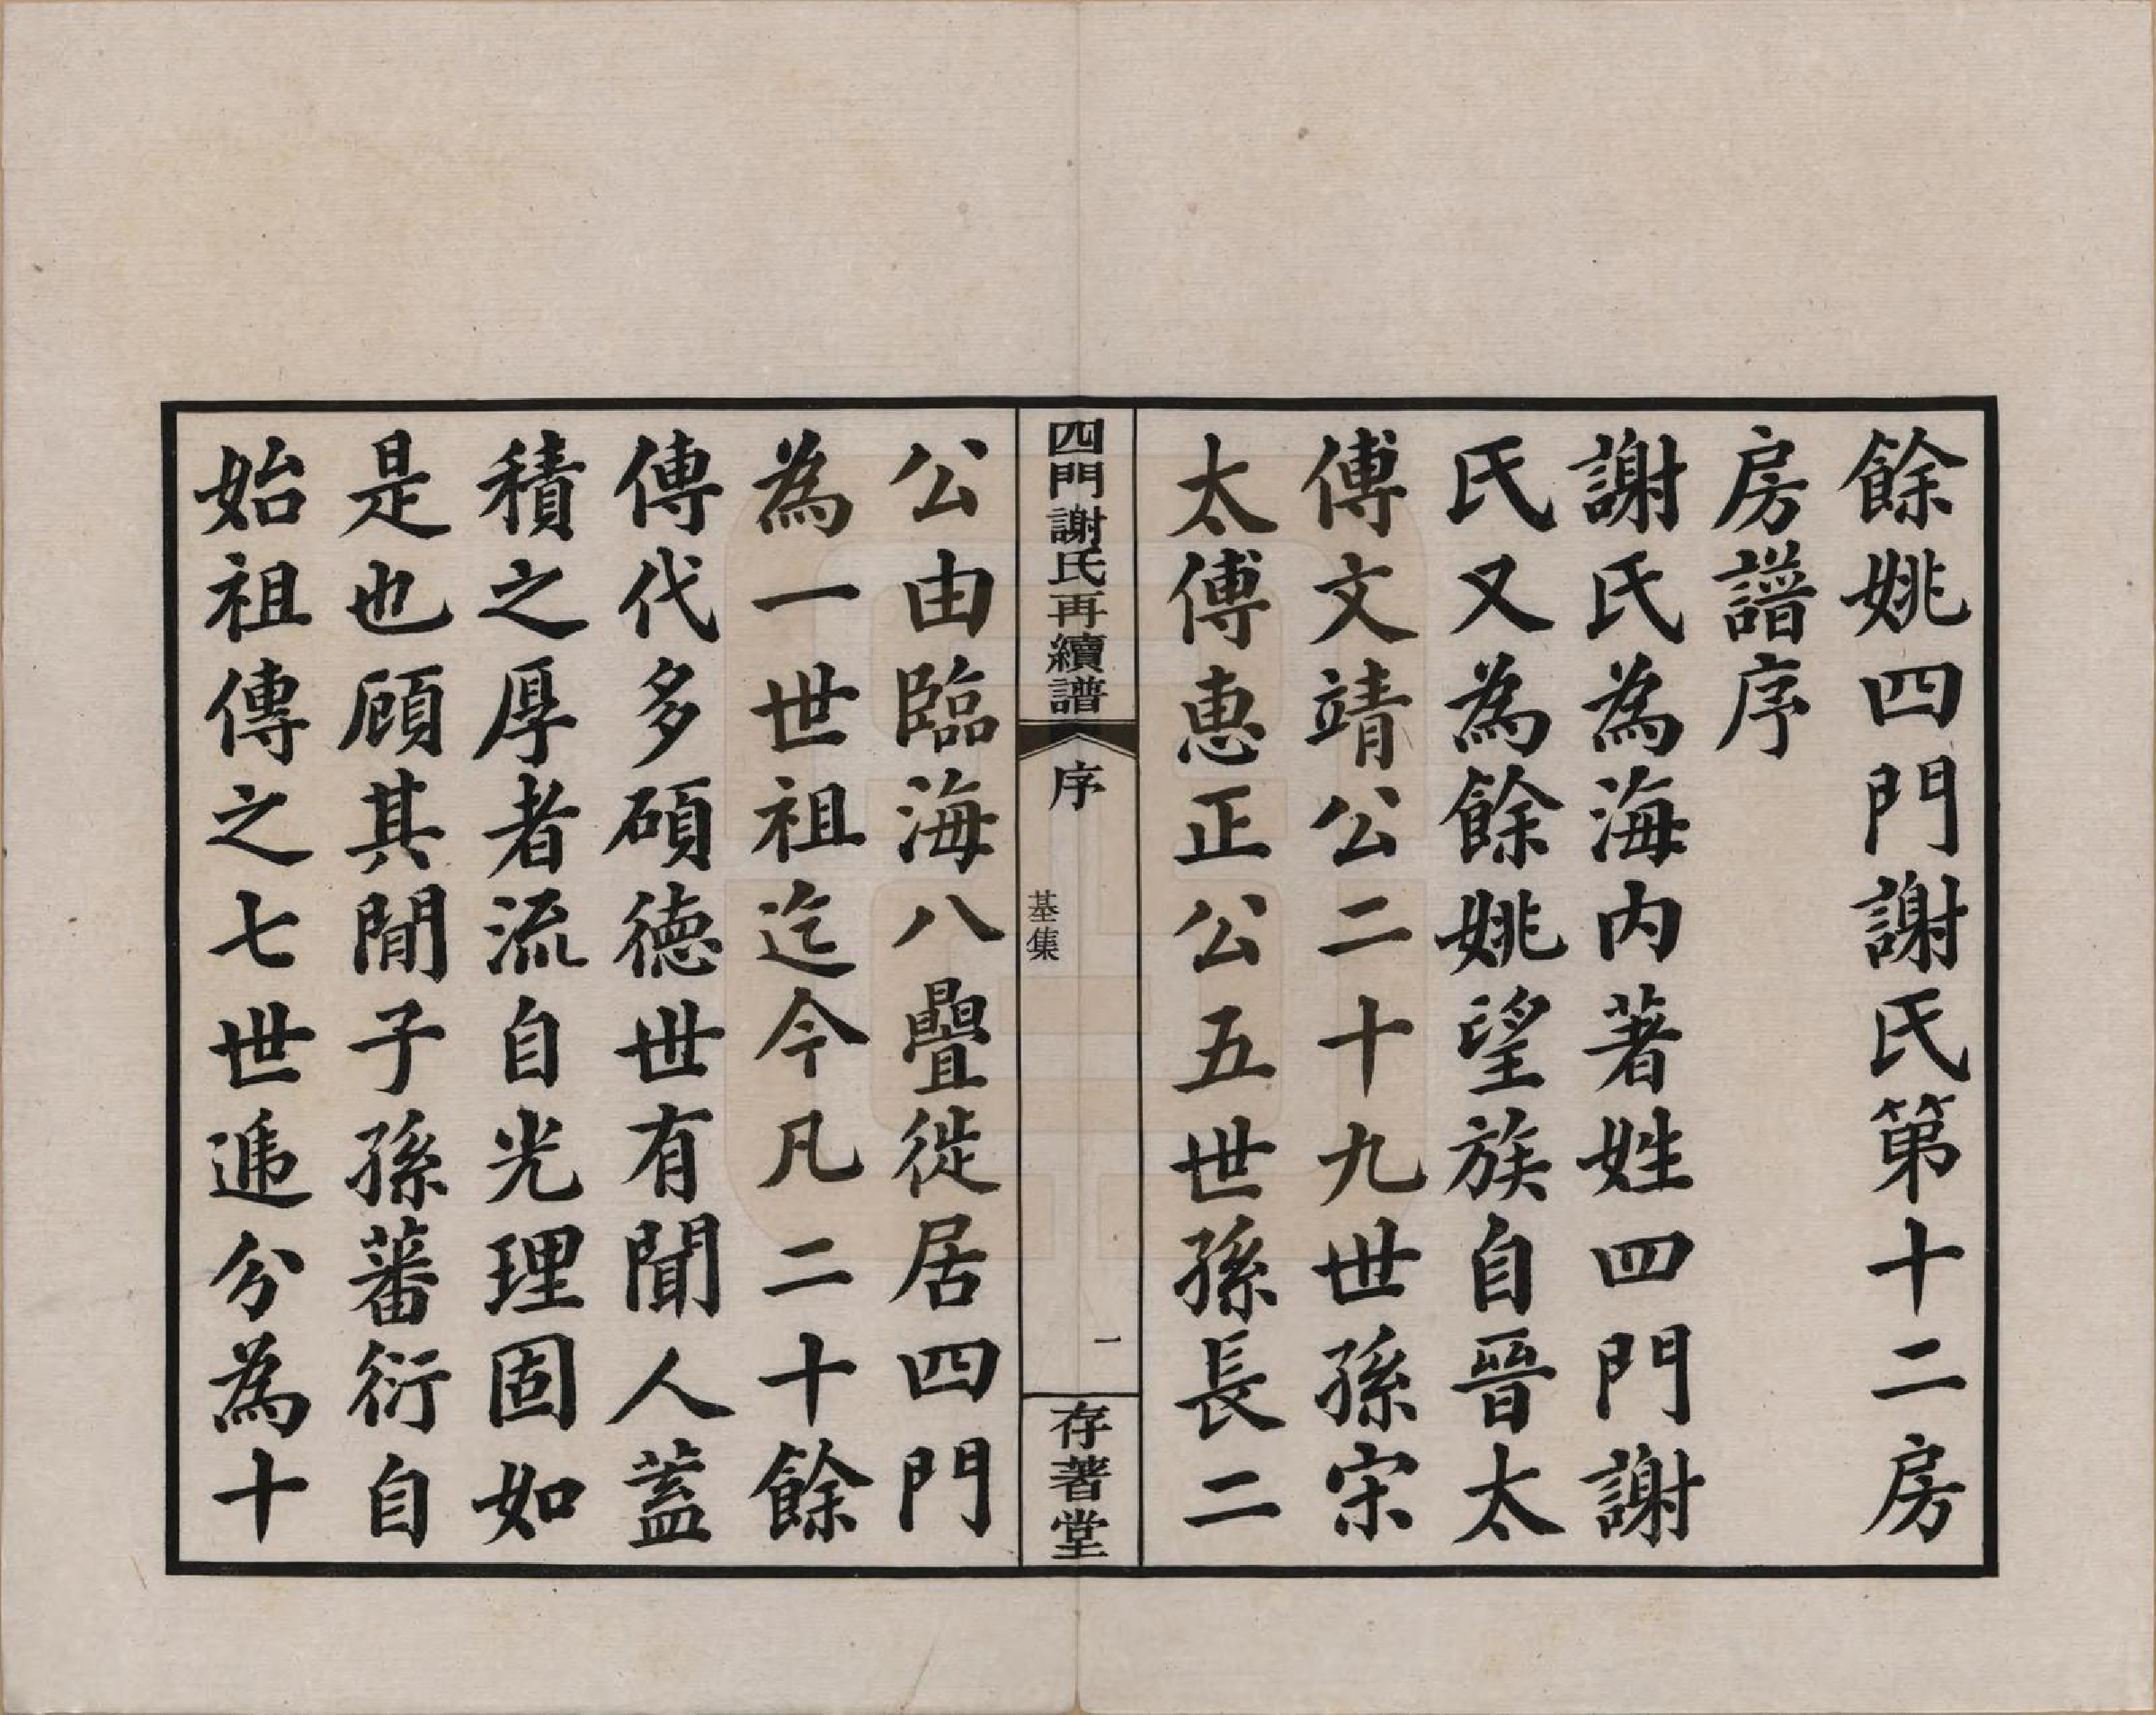 餘姚四門謝氏第十二房
房譜序
謝氏為海内著姓四門謝
氏又為餘姚望族自晉太
傅文靖公二十九世孫宋
太傅惠正公五世孫長二
四門謝氏再續譜
序
基集
一
存著堂
公由臨海八疊徙居四門
為一世祖迄今凡二十餘
傳代多碩德世有聞人蓋
積之厚者流自光理固如
是也顧其閒子孫蕃衍自
始祖傳之七世遞分為十